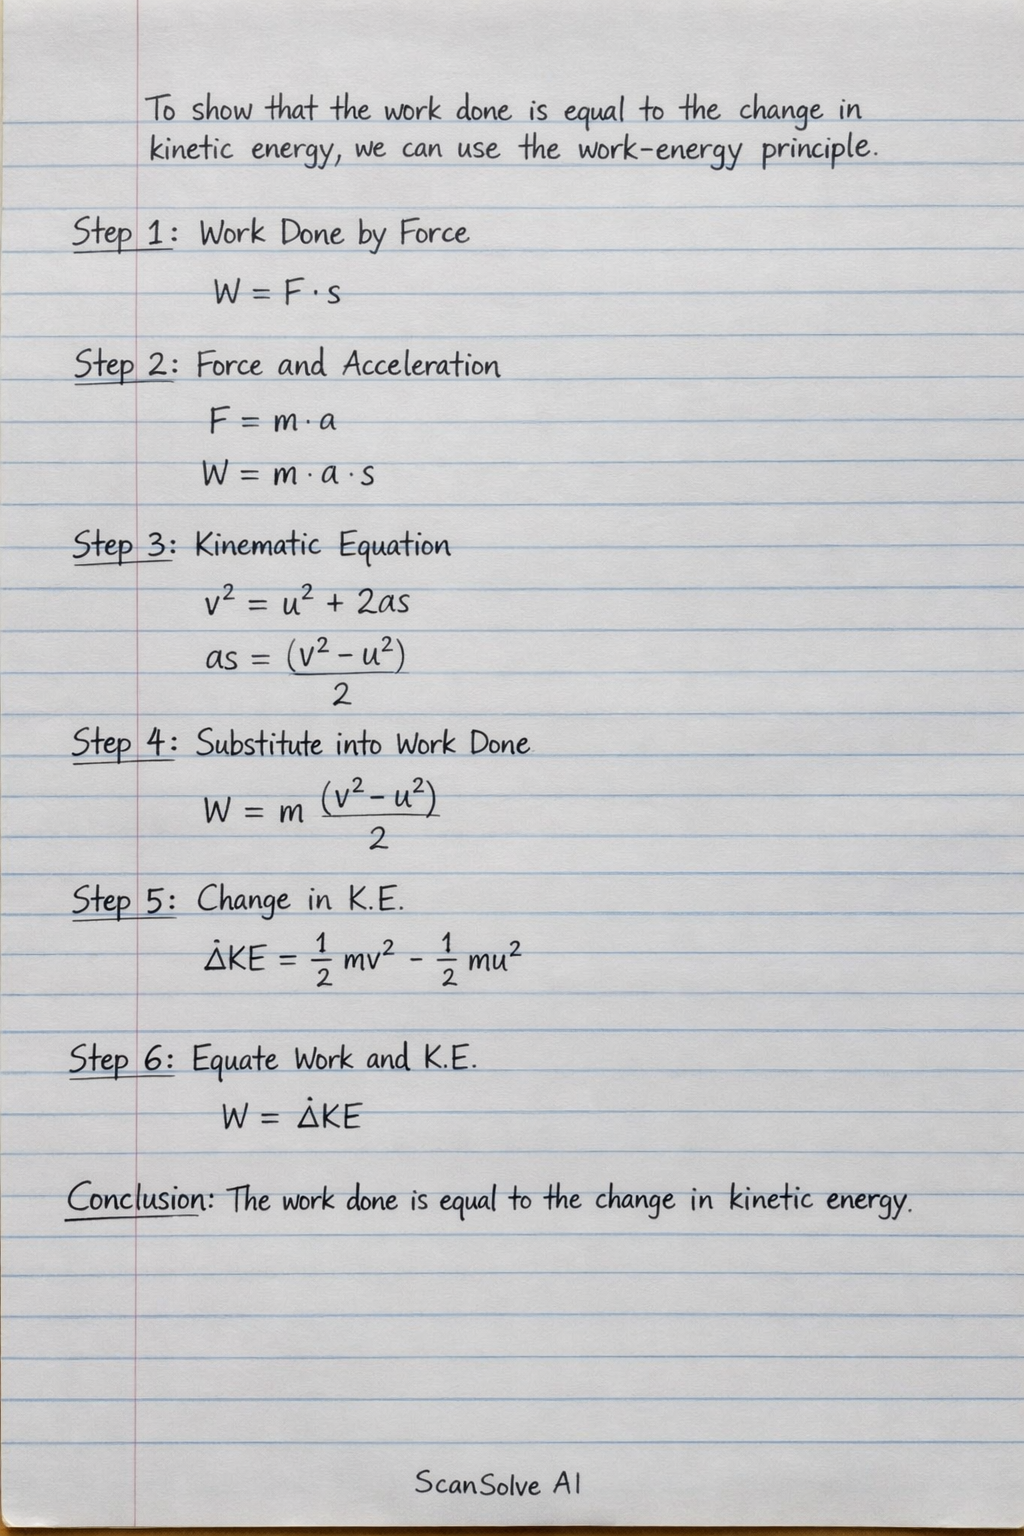 To show that the work done is equal to the change in
kinetic energy, we can use the work-energy principle.
Step 1: Work Done by Force
W = F · s
Step 2: Force and Acceleration
F = m · a
W = m · a · s
Step 3: Kinematic Equation
v² = u² + 2as
as = (v² - u²)/2
Step 4: Substitute into Work Done
W = m (v² - u²)/2
Step 5: Change in K.E.
Δ̇KE = 1/2 mv² - 1/2 mu²
Step 6: Equate Work and K.E.
W = Δ̇KE
Conclusion: The work done is equal to the change in kinetic energy.
ScanSolve AI